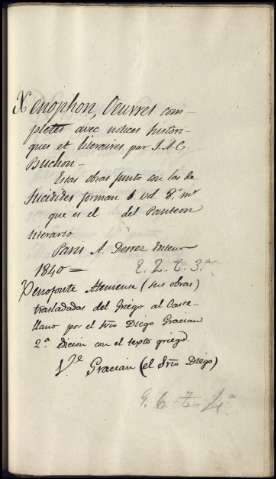 Xenophon, Oeuvres com-
pletes avec notices histori-
ques et literaires par J. A. C.
Buchon -
Estas obras junto con las de
Tucidides forman 1 vol. 8º mr
que es el del Panteon
literario
Paris A. Desrez
1840 =
E. 2. t. 3.
Xenofonte Ateniense (las obras)
trasladadas del Griego al Caste-
llano por el Srio Diego Gracian
2ª Edicion con el texto griego
Ve. Gracian (el Srio Diego)
E. 6. t. 4.